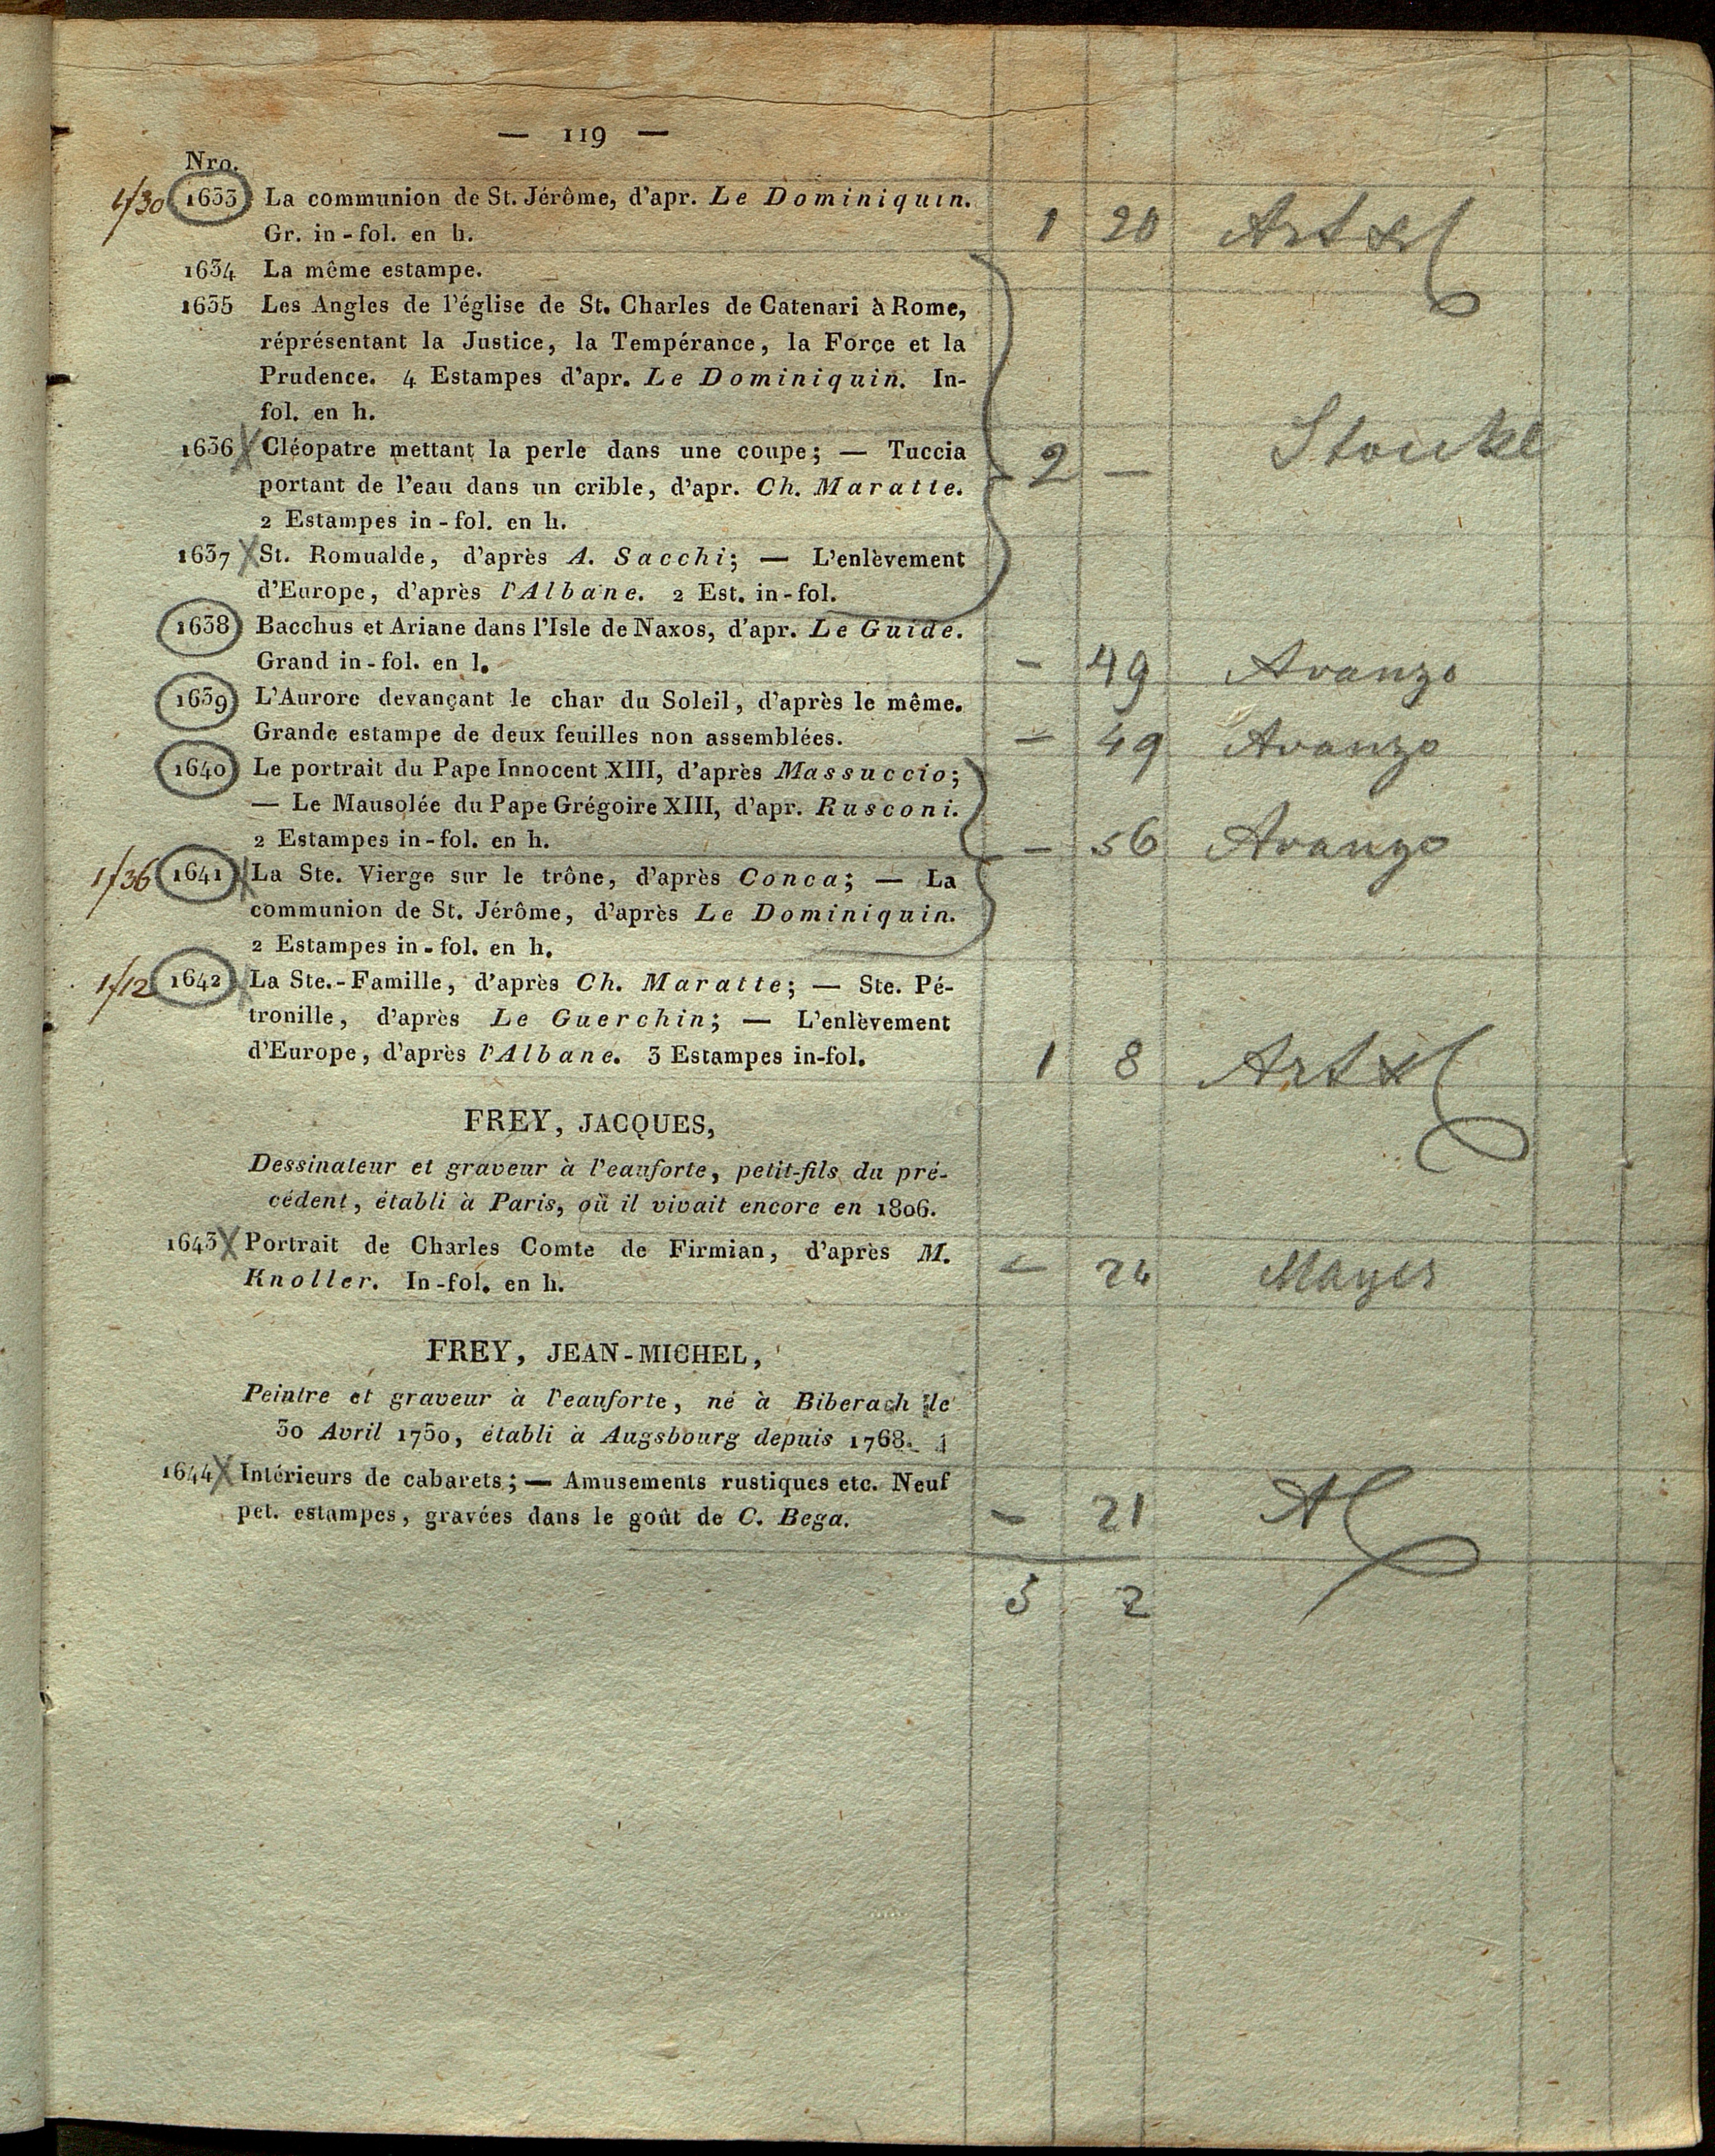 — 119 —
Nro.
1/30 1633 La communion de St. Jérôme, d'apr. Le Dominiquin.
Gr. in-fol. en h. 1 20
1634 La même estampe.
1635 Les Angles de l'église de St. Charles de Catenari à Rome,
réprésentant la Justice, la Tempérance, la Force et la
Prudence. 4 Estampes d'apr. Le Dominiquin. In-
fol. en h.
1636 X Cléopatre mettant la perle dans une coupe; — Tuccia
portant de l'eau dans un crible, d'apr. Ch. Maratte. 2 —
2 Estampes in-fol. en h.
1637 X St. Romualde, d'après A. Sacchi; — L'enlèvement
d'Europe, d'après l'Albane. 2 Est. in-fol.
1638 Bacchus et Ariane dans l'Isle de Naxos, d'apr. Le Guide.
Grand in-fol. en l. — 49 Avanzo
1639 L'Aurore devançant le char du Soleil, d'après le même.
Grande estampe de deux feuilles non assemblées. — 49 Avanzo
1640 Le portrait du Pape Innocent XIII, d'après Massuccio;
— Le Mausolée du Pape Grégoire XIII, d'apr. Rusconi.
2 Estampes in-fol. en h. — 56 Avanzo
1/36 1641 X La Ste. Vierge sur le trône, d'après Conca; — La
communion de St. Jérôme, d'après Le Dominiquin.
2 Estampes in-fol. en h.
1/12 1642 X La Ste.-Famille, d'après Ch. Maratte; — Ste. Pé-
tronille, d'après Le Guerchin; — L'enlèvement
d'Europe, d'après l'Albane. 3 Estampes in-fol. 1 8
FREY, JACQUES,
Dessinateur et graveur à l'eauforte, petit-fils du pré-
cédent, établi à Paris, où il vivait encore en 1806.
1643 X Portrait de Charles Comte de Firmian, d'après M.
Knoller. In-fol. en h. — 24 Mayer
FREY, JEAN-MICHEL,
Peintre et graveur à l'eauforte, né à Biberach le
30 Avril 1750, établi à Augsbourg depuis 1768.
1644 X Intérieurs de cabarets; — Amusements rustiques etc. Neuf
pet. estampes, gravées dans le goût de C. Bega. — 21
5 2